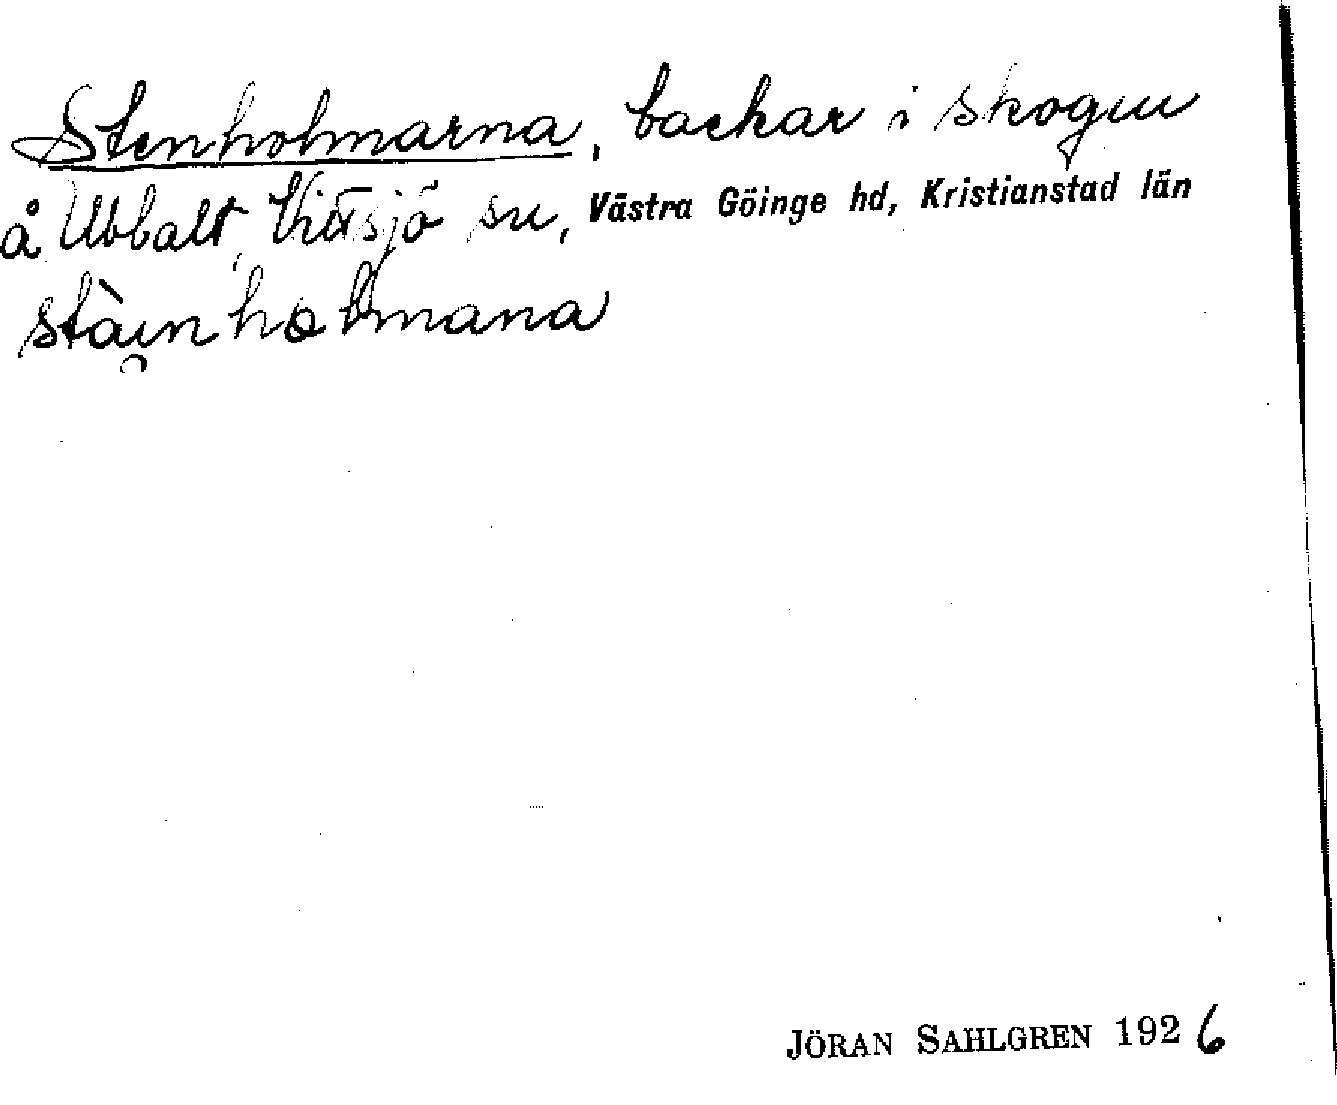 Stenholmarna, backar i skogen
å Ubbalt, Vittsjö sn, Västra Göinge hd, Kristianstad län
stàinholmana
JÖRAN SAHLGREN 1926